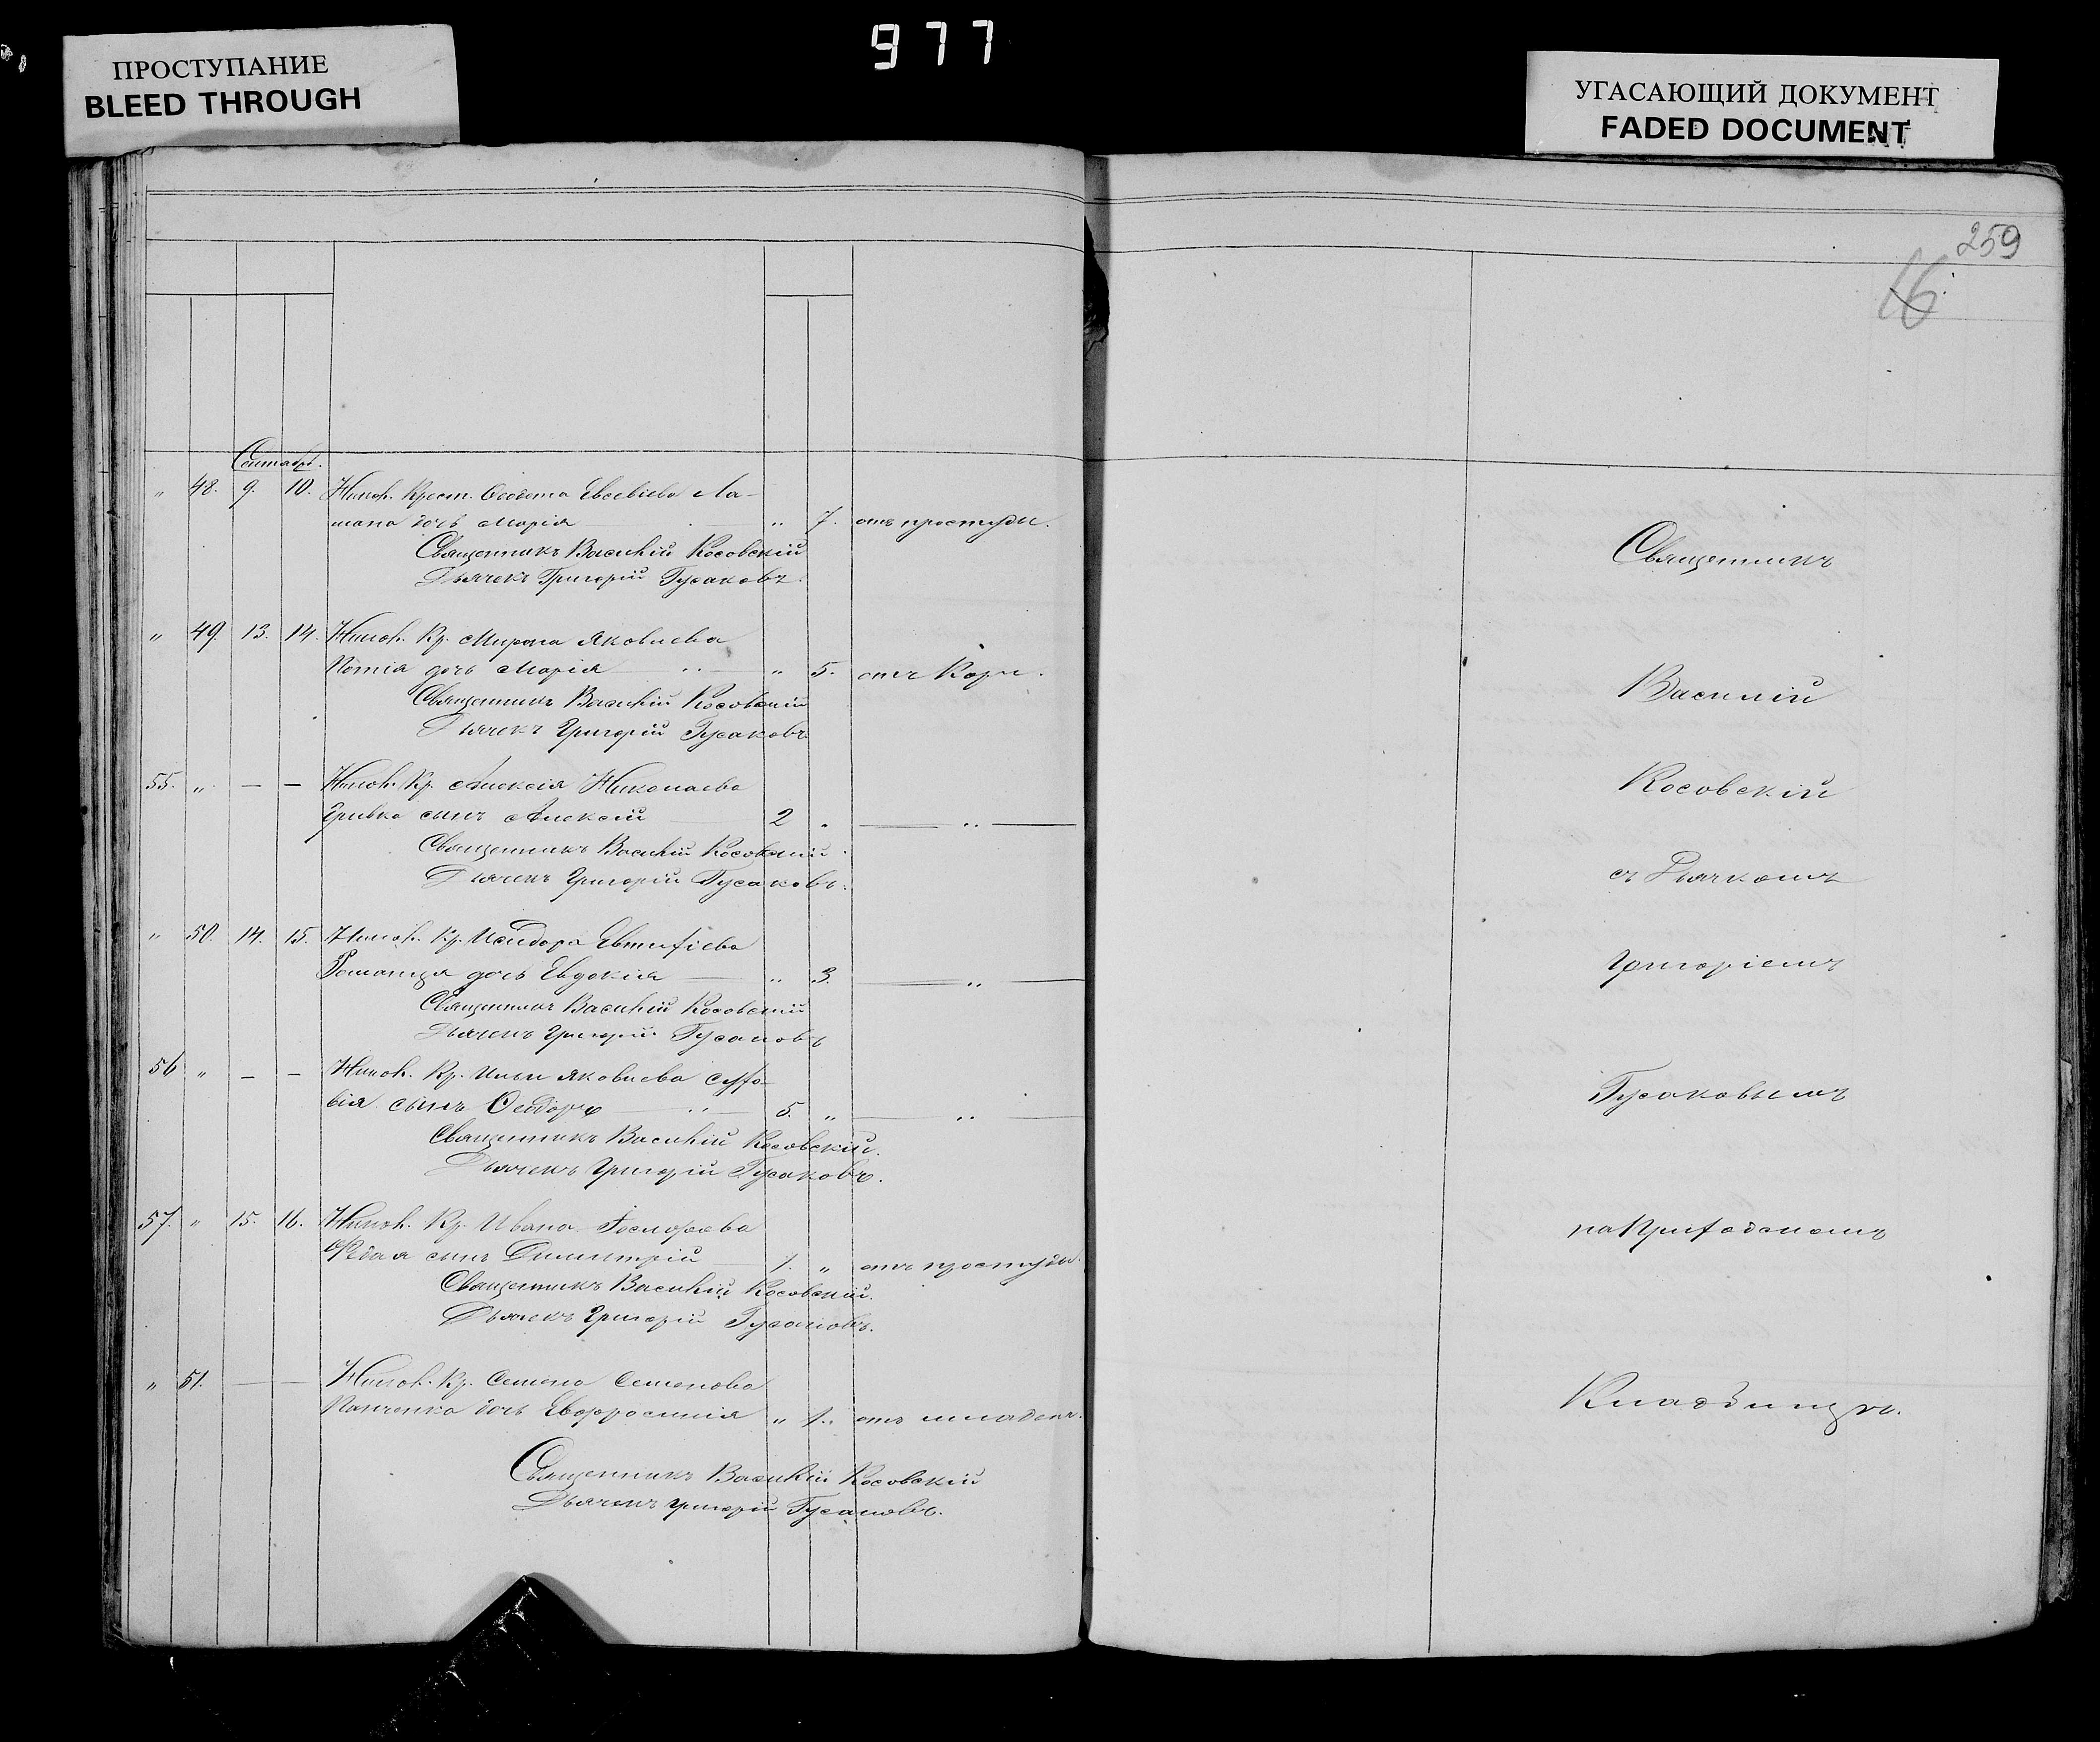 977
ПРОСТУПАНИЕ
BLEED THROUGH
УГАСАЮЩИЙ ДОКУМЕНТ
FADED DOCUMENT
259
16
Сентябрь.
„ 48. 9. 10. Крест. Ѳеодота Евсевіева Ла-
мана дочь Марія „ 7. отъ простуды.
Священникъ Василій Косовскій
Дьячекъ Григорій Гусаковъ.
„ 49. 13. 14. Кр. Мирона Яковлева
дочь Марія „ 5. отъ Кори.
Священникъ Василій Косовскій
Дьячекъ Григорій Гусаковъ
55. „ — — Кр. Алексія Николаева
Гривка сынъ Алексій 2 „ — „ —
Священникъ Василій Косовскій
Дьячекъ Григорій Гусаковъ.
„ 50. 14. 15. Кр. Исидора Евтифіева
дочь Евдокія „ 3. — „ —
Священникъ Василій Косовскій
Дьячекъ Григорій Гусаковъ
56 „ — — Кр. Ильи Яковлева
сынъ Ѳеодоръ 5. „ — „ —
Священникъ Василій Косовскій.
Дьячекъ Григорій Гусаковъ.
57. „ 15. 16. Кр. Ивана
сынъ Димитрій 1. „ отъ простуды.
Священникъ Василій Косовскій.
Дьячекъ Григорій Гусаковъ.
„ 51. — — Кр. Семена Семенова
Панченка дочь Евфросинія „ 1. отъ младенч.
Священникъ Василій Косовскій
Дьячекъ Григорій Гусаковъ.
Священникъ
Василій
Косовскій
съ Дьячкомъ
Григоріемъ
Гусаковымъ
на Приходскомъ
Кладбищѣ.